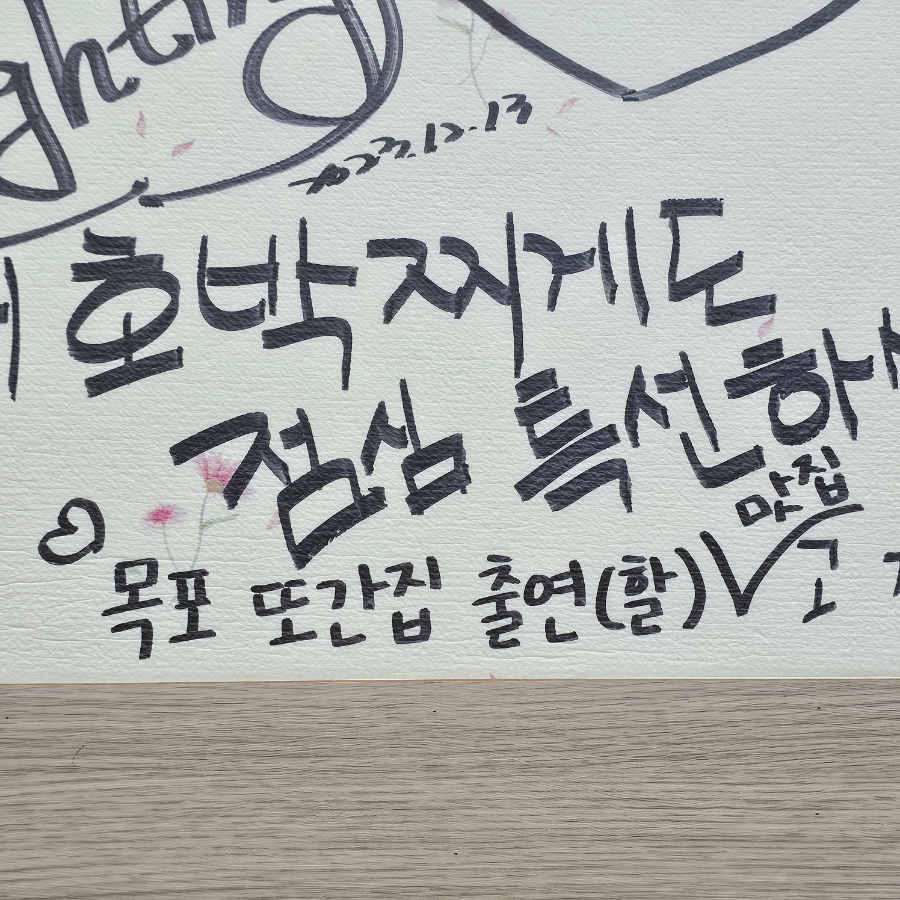 ghting
2022.12.13
호박찌게도
점심 특선하
맛집
목포 또간집 출연(할)